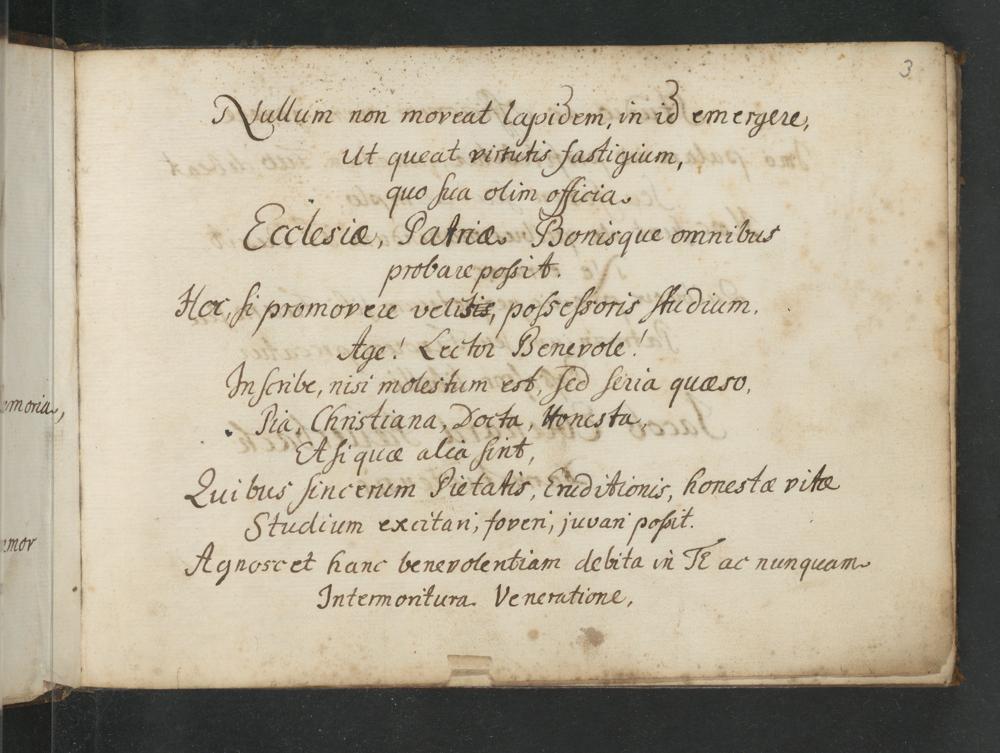 3
Nullum non moveat lapidem, in id emergere,
Ut queat virtutis fastigium,
quo sua olim officia
Ecclesiæ, Patriæ Bonisque omnibus
probare possit.
Hoc, si promovere velis, possessoris studium.
Age! Lector Benevole!
Inscribe, nisi molestum est, sed seria quæso,
Pia, Christiana, Docta, Honesta,
Et si quæ alia sint,
Quibus sincerum Pietatis, Eruditionis, honestæ vitæ
Studium excitari, foveri, juvari possit.
Agnoscet hanc benevolentiam debita in TE ac nunquam
Intermoritura Veneratione.
emoria,
emor